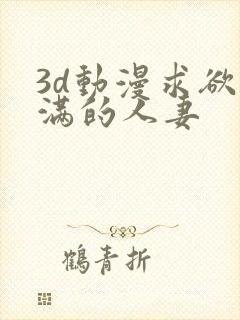 3d動漫求欲
满的人妻
鶴青折